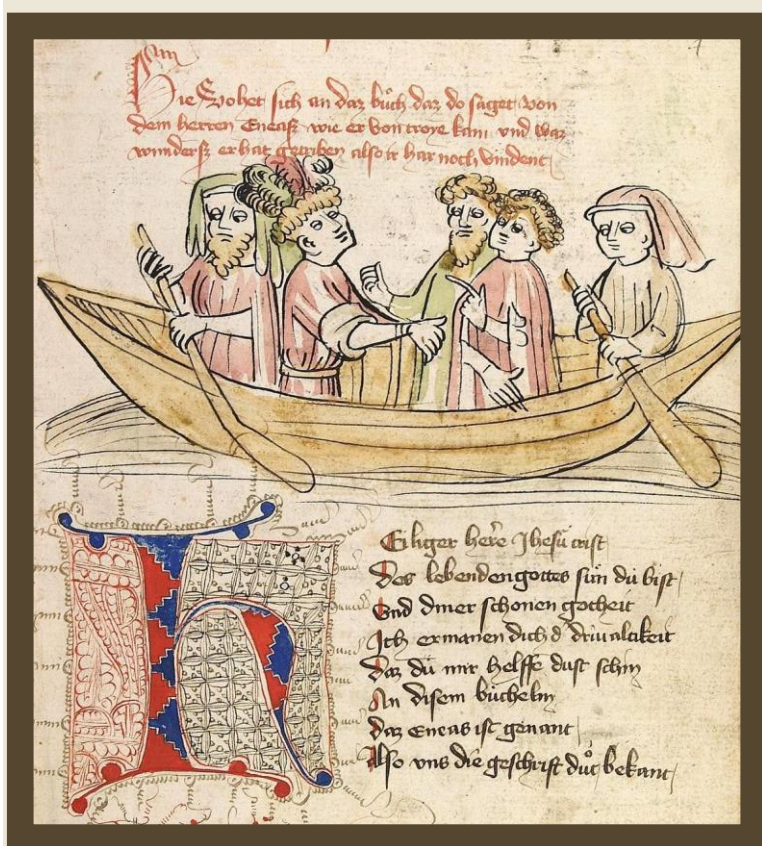 Hie Vohet sich an daz bůch daz do saget von
dem herren Eneasz wie er von troye kam vnd waz
wundersz er hat getriben also ir har noch vindent
Heiliger here Jhesu crist
Des lebenden gottes sun du bist
Vnd diner schonen gotheit
Ich ermanen dich d' driualtikeit
Daz du mir helffe dust schin
An disem büchelin
Daz Eneas ist genant
Also vns die geschrift důt bekant